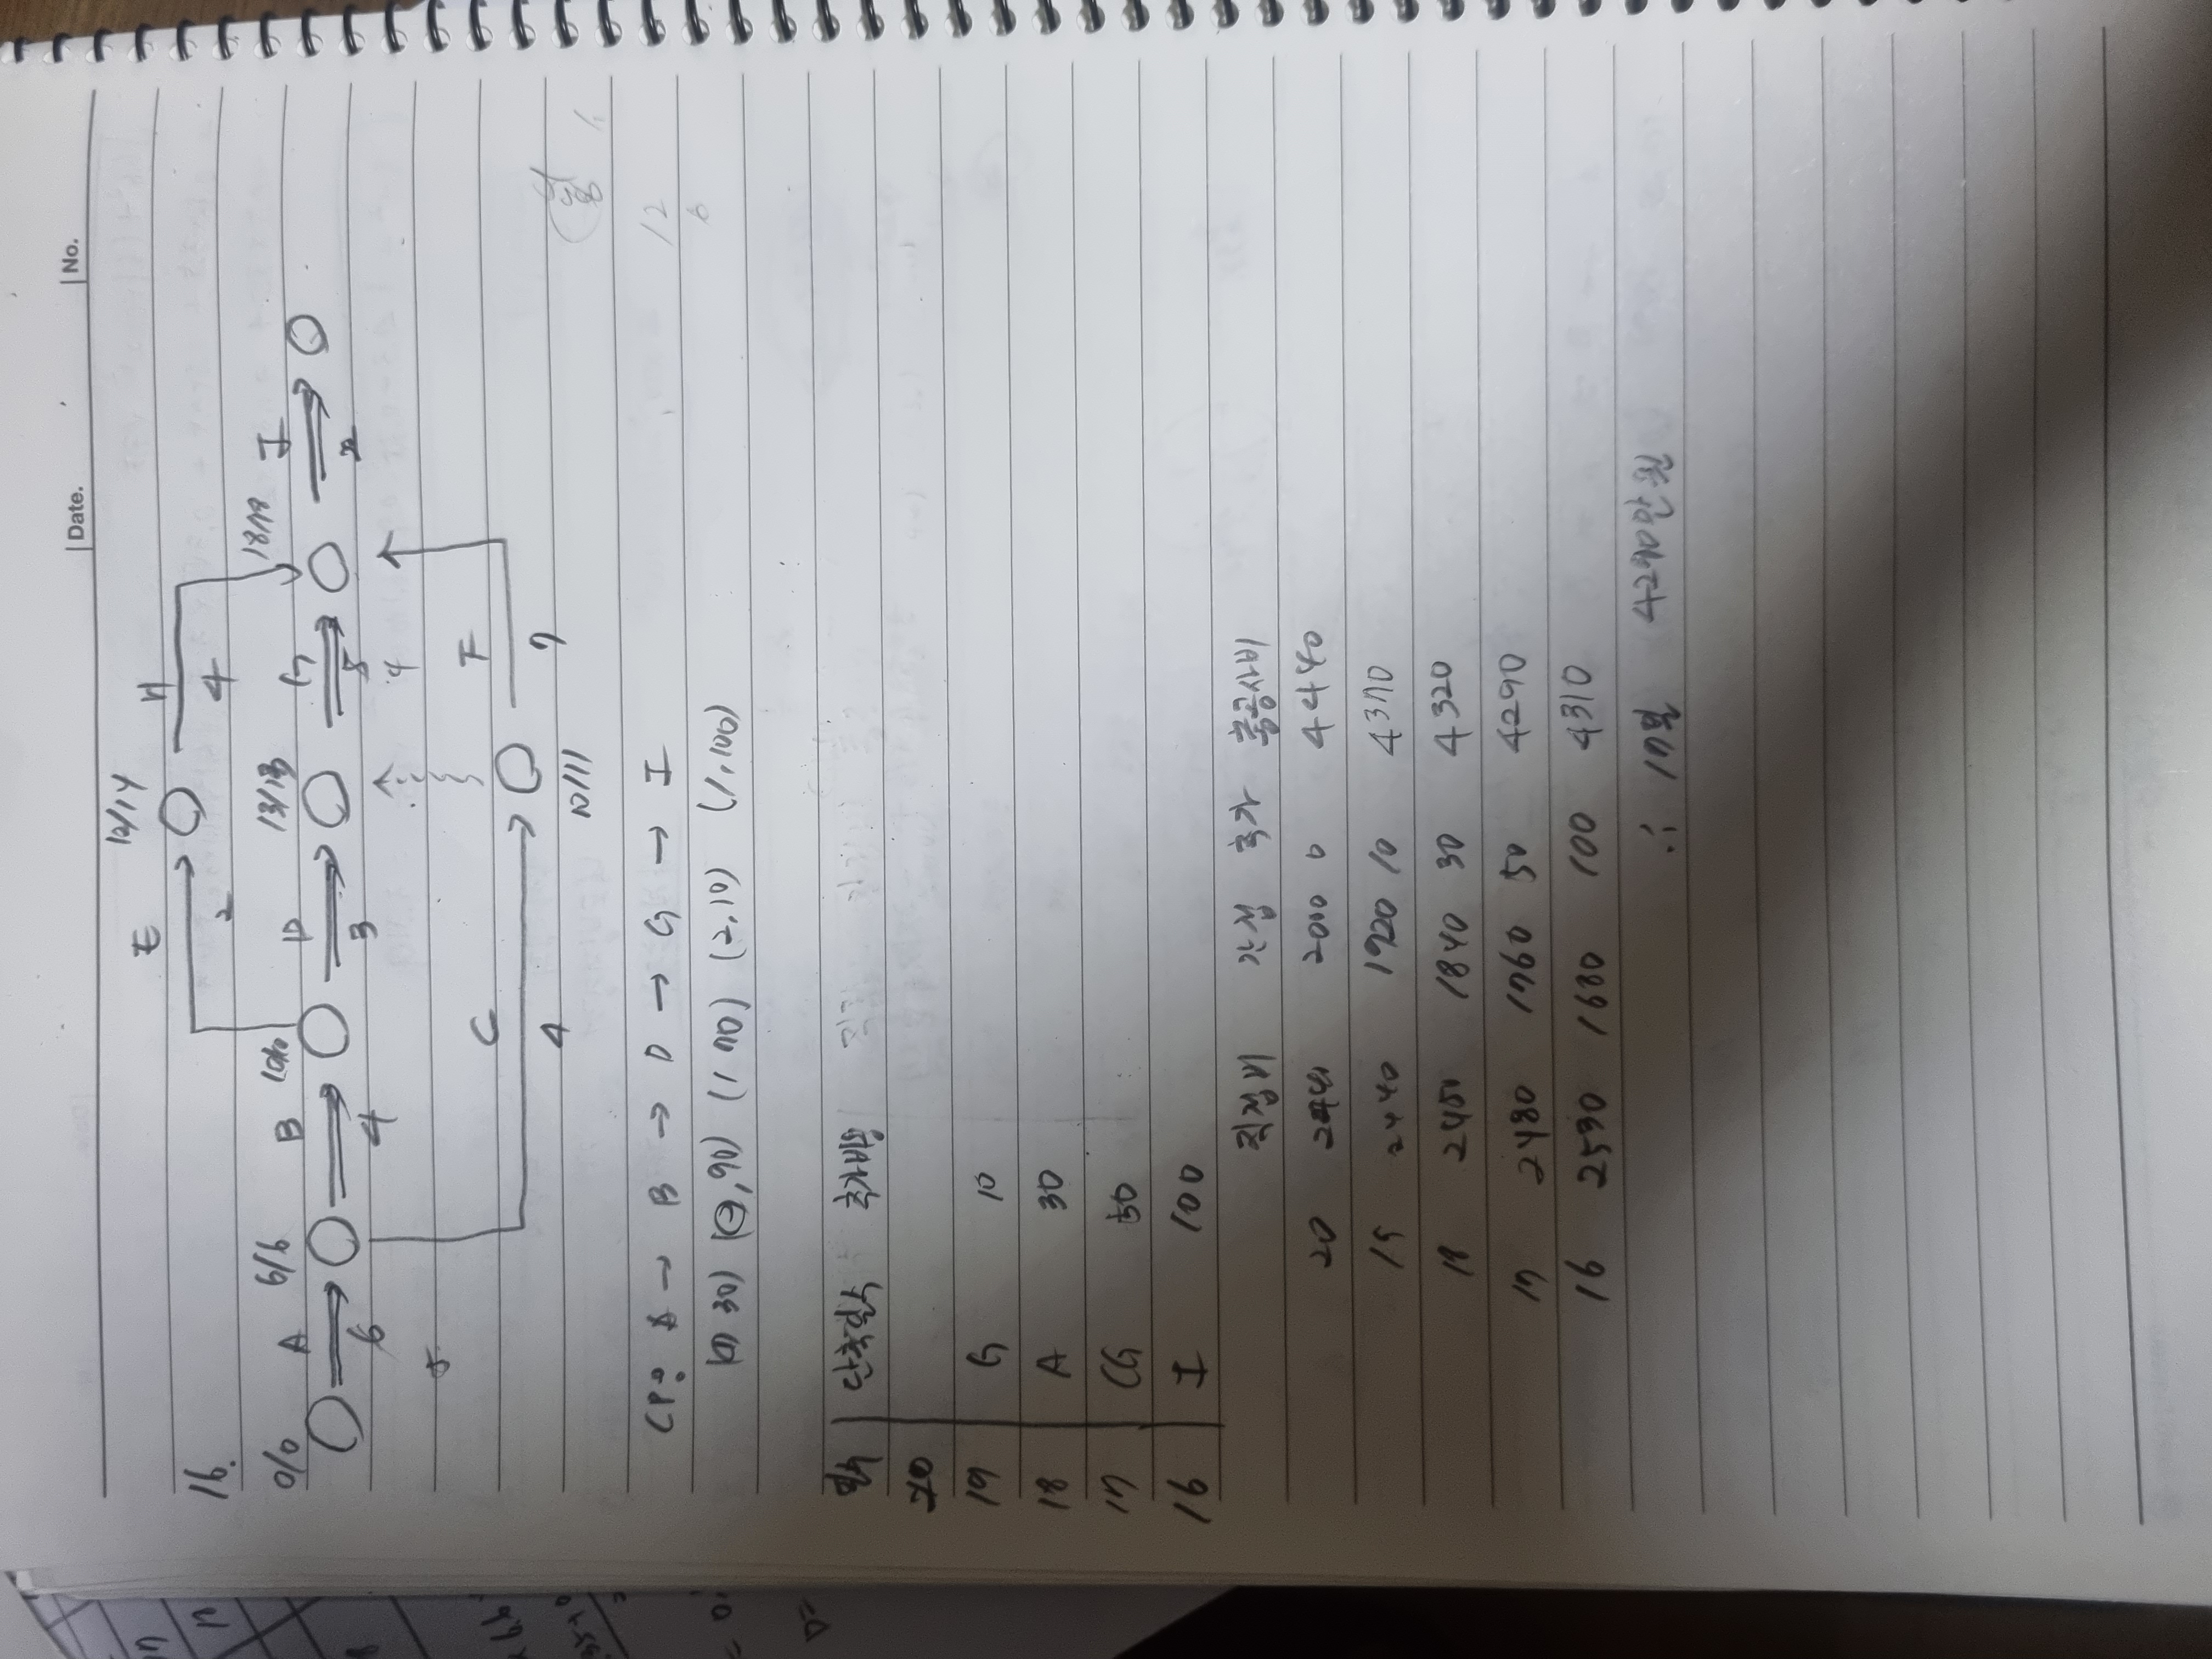 Date. No.
16.
E 12/14 H
2 4
0/0 A 6/6 B 10/10 D 13/13 G 18/18 I
6 4 3 5 2
4
5
C F
4 7
10/11
CP: A → B → D → G → I
12
6
(1, 30) (2, 90) (1, 70) (2, 10) (1, 100)
일수 단축일수 추가비용
20
19 G 10
18 A 30
17 CG 50
16 I 100
직접비 간접 추가 총공사비
20 2440 2000 0 4440
19 2440 1920 10 4370
18 2450 1840 30 4320
17 2480 1760 50 4290
16 2530 1680 100 4310
∴ 17일 4290만원